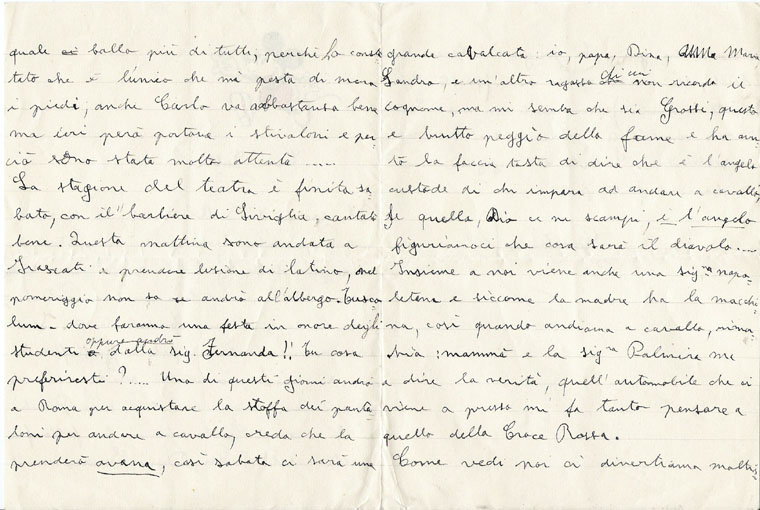 quale ballo più di tutti, perchè ho consta
tato che è l'unico che mi pesta di meno
i piedi, anche Carlo va abbastanza bene
ma ieri però portava i stivaloni e per
ciò sono stata molto attenta ......
La stagione del teatro è finita sa
bato, con il "barbiere di Siviglia, cantato
bene. Questa mattina sono andata a
Frascati a prendere lezione di latino, nel
pomeriggio non so se andrò all'albergo Tusco
lum - dove faranno una festa in onore degli
studenti o oppure andrò dalla sig. Fernanda!! Tu cosa
preferiresti?..... Uno di questi giorni andrò
a Roma per acquistare la stoffa dei panta
loni per andare a cavallo, credo che la
prenderò avana, così sabato ci sarà una
grande cavalcata: io, papà, Dina, Maria
Sandra, e un'altro ragazzo di cui non ricordo il
cognome, ma mi semba che sia Grossi, questo
è brutto peggio della fame e ha avu
to la faccia tosta di dire che è l'angelo
custode di chi impara ad andare a cavallo,
Se quello, Dio ce ne scampi, è l'angelo
figuriamoci che cosa sarà il diavolo....
Insieme a noi viene anche una sig.na napo
letana e siccome la madre ha la macchi
na, così quando andiamo a cavallo,
mamma e la sig.na Palmira
a dire la verità, quell'automobile che ci
viene a presso mi fa tanto pensare a
quello della Croce Rossa.
Come vedi noi ci divertiamo moltis